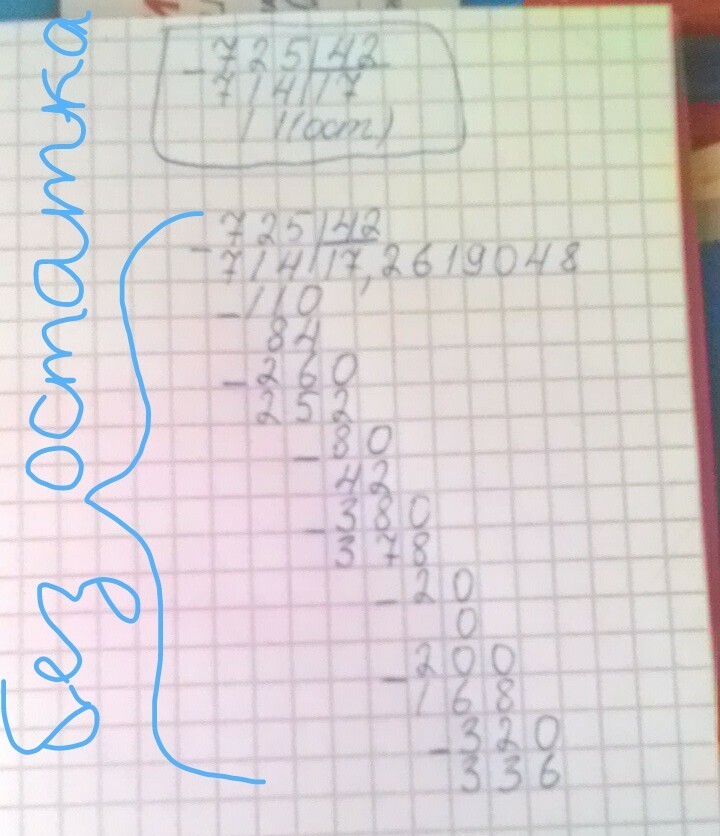 без остатка
-725|42
714|17
11(ост)
-725|42
714|17,2619048
-110
84
-260
252
-80
42
-380
378
-20
0
-200
168
-320
336